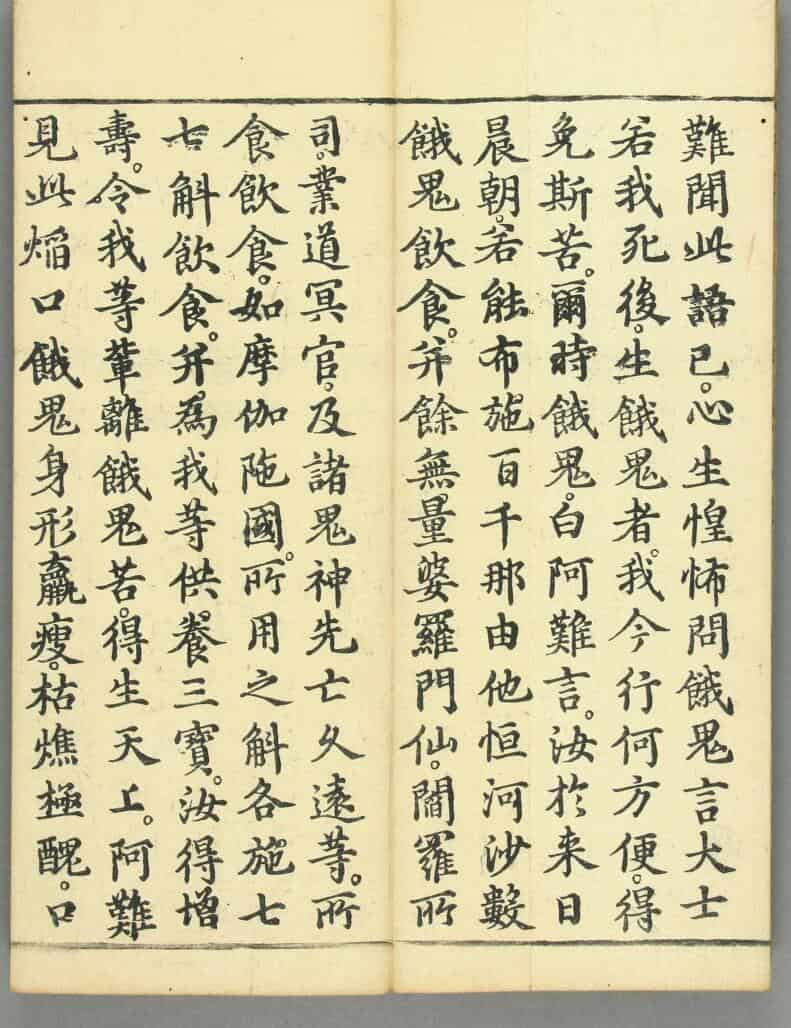 難聞此語已。心生惶怖問餓鬼言大士
若我死後。生餓鬼者。我今行何方便。得
免斯苦。爾時餓鬼。白阿難言。汝於来日
晨朝。若能布施百千那由他恒河沙數
餓鬼飲食。并餘無量婆羅門仙。閻羅所
司。業道冥官。及諸鬼神先亡久遠等。所
食飲食。如摩伽陁國。所用之斛各施七
七斛飲食。并爲我等供。養三寶。汝得增
壽。令我等軰離餓鬼苦。得生天上。阿難
見此焰口餓鬼身形羸瘦。枯燋極醜。口